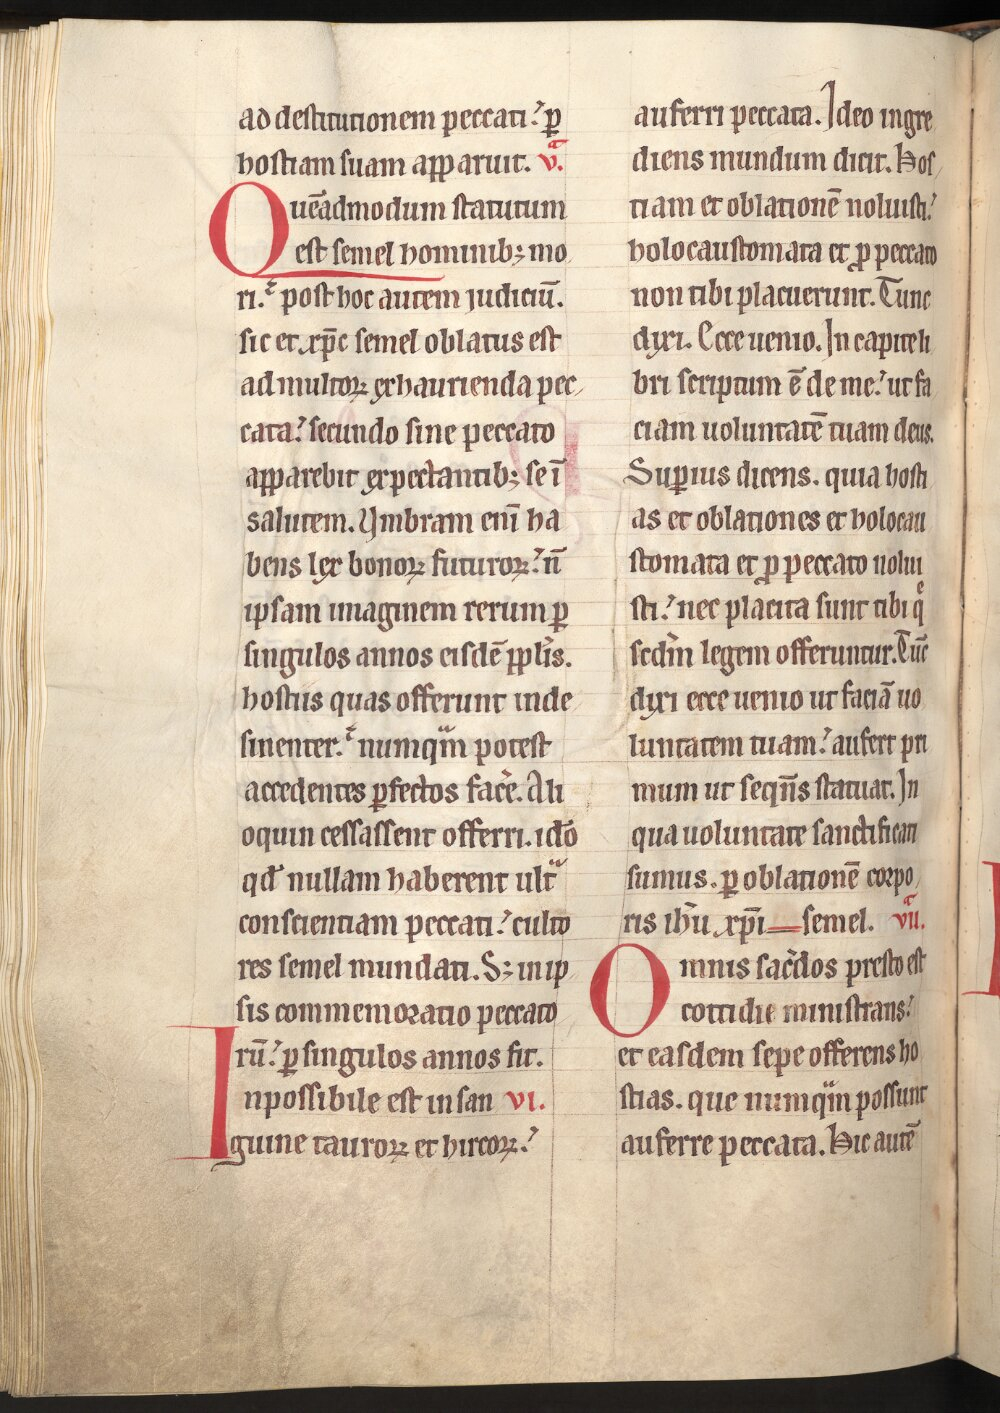 ad destitutionem peccati. ꝑ
hostiam suam apparuit. v.ͣ
Quēadmodum statutum
est semel hominib; mo
ri. post hoc autem judiciū.
sic et xp̄c semel oblatus est
ad multoꝝ exhaurienda pec-
cata. secundo sine peccato
apparebit expectantib; se ī
salutem. Vmbram enī ha
bens lex bonoꝝ futuroꝝ. n̄
ipsam imaginem rerum ꝑ
singulos annos eisdē ip̄lis.
hostiis quas offerunt inde
sinenter. numqͣm potest
accedentes ꝑfectos facͤe. Ali
oquin cessassent offerri. idō
qd̄ nullam haberent ultͣ
conscientiam peccati. culto
res semel mundati. S; in ip
sis commemoratio peccato
rū. ꝑ singulos annos fit.
Inpossibile est in san vi.
guine tauroꝝ et hircoꝝ.
auferri peccata. Ideo ingre
diens mundum dicit. Hos-
tiam et oblationē noluisti.
holocaustomata et ꝓ peccato
non tibi placuerunt. Tunc
dixi. Ecce uenio. In capite li
bri scriptum ē de me. ut fa
ciam uoluntatē tuam deus.
Supius dicens. quia hosti
as et oblationes et holocau
stomata et ꝓ peccato nolui
sti. nec placita sunt tibi qͤ
scdm̄ legem offeruntur. Tūc
dixi ecce uenio ut faciā uo
luntatem tuam. aufert pri
mum ut seqn̄s statuat. In
qua uoluntate sanctificati
sumus. ꝑ oblationē corpo
ris ih̄u xp̄i semel. vii.ͣ
Omnis sac̄dos presto est
cottidie ministrans.
et easdem sepe offerens ho
stias. que numqͣm possunt
auferre peccata. Hic autē